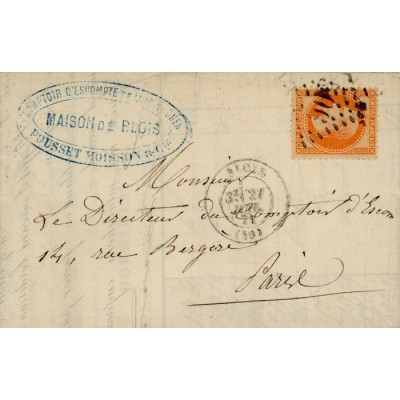 COMPTOIR D'ESCOMPTE DE
MAISON DE BLOIS
POUSSET MOISSON & Cie
BLOIS
(40)
Monsieur
Le Directeur du Comptoir d'Escom
14, rue Bergère
Paris